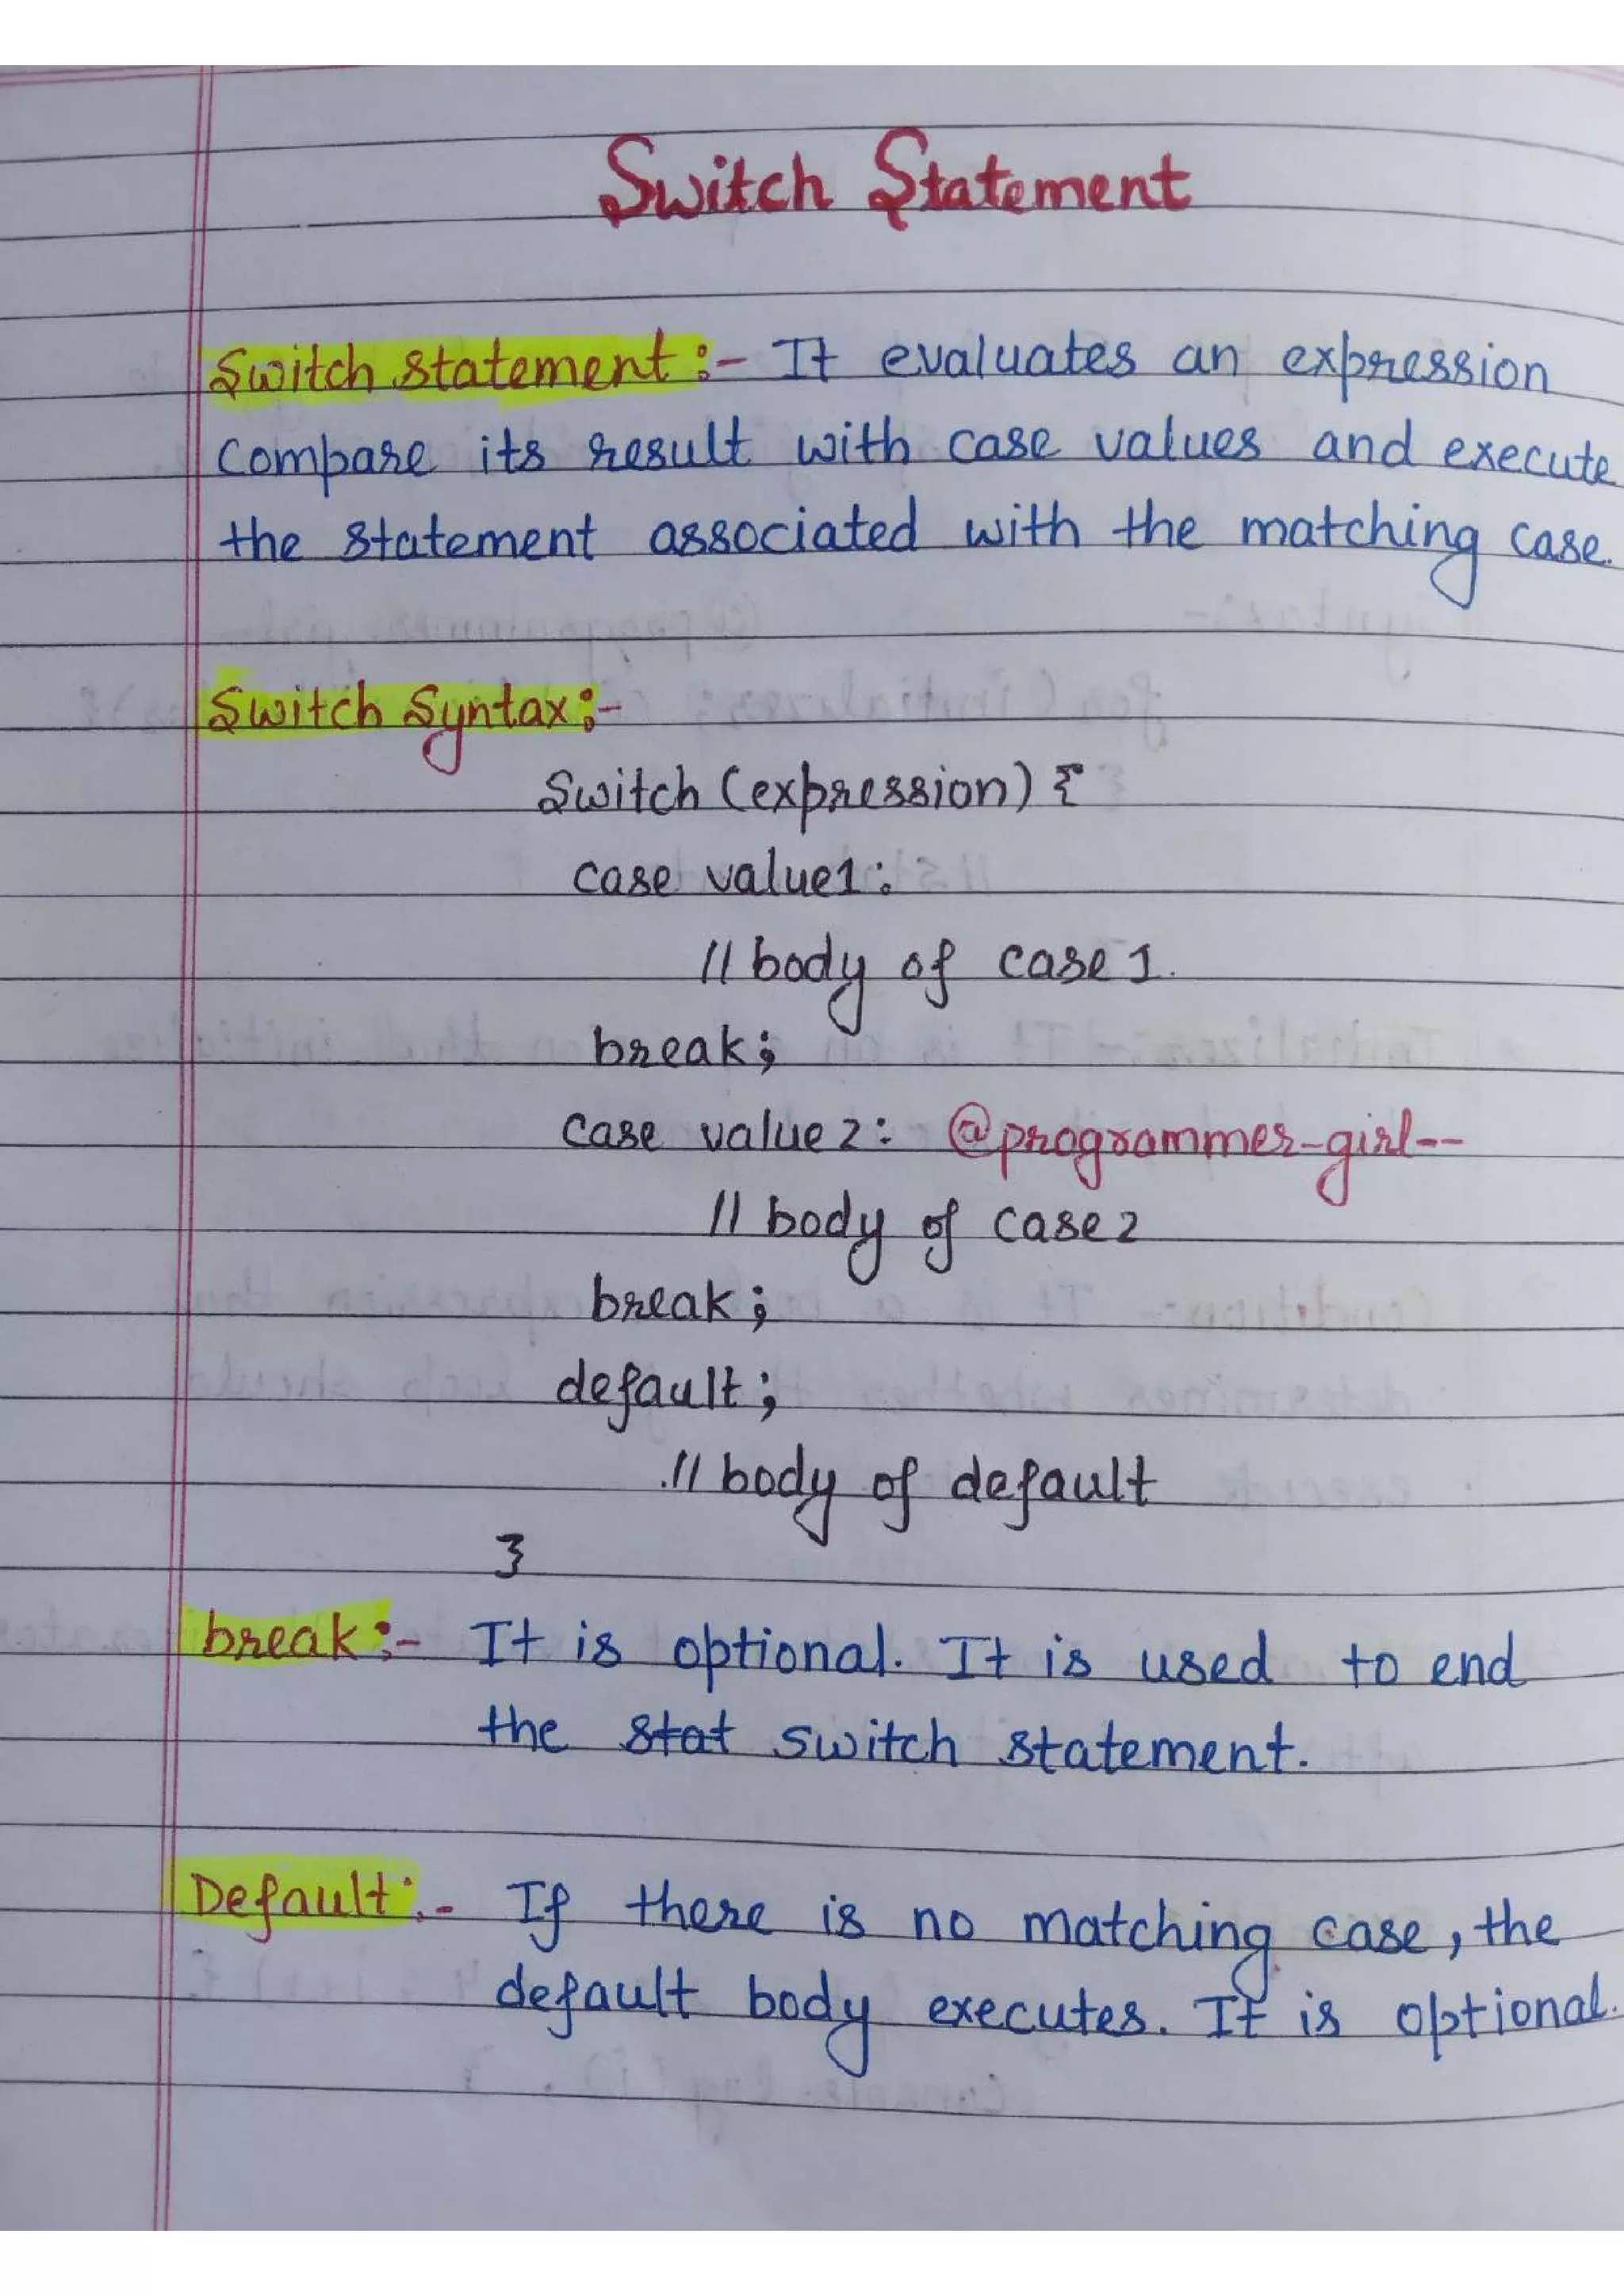 Switch Statement
Switch statement :- It evaluates an expression
compare its result with case values and execute
the statement associated with the matching case.
Switch Syntax :-
Switch (expression) {
case value1:
// body of case 1.
break;
case value2: @programmer-girl--
// body of case2
break;
default;
// body of default
}
break :- It is optional. It is used to end
the stat switch statement.
Default :- If there is no matching case, the
default body executes. It is optional.